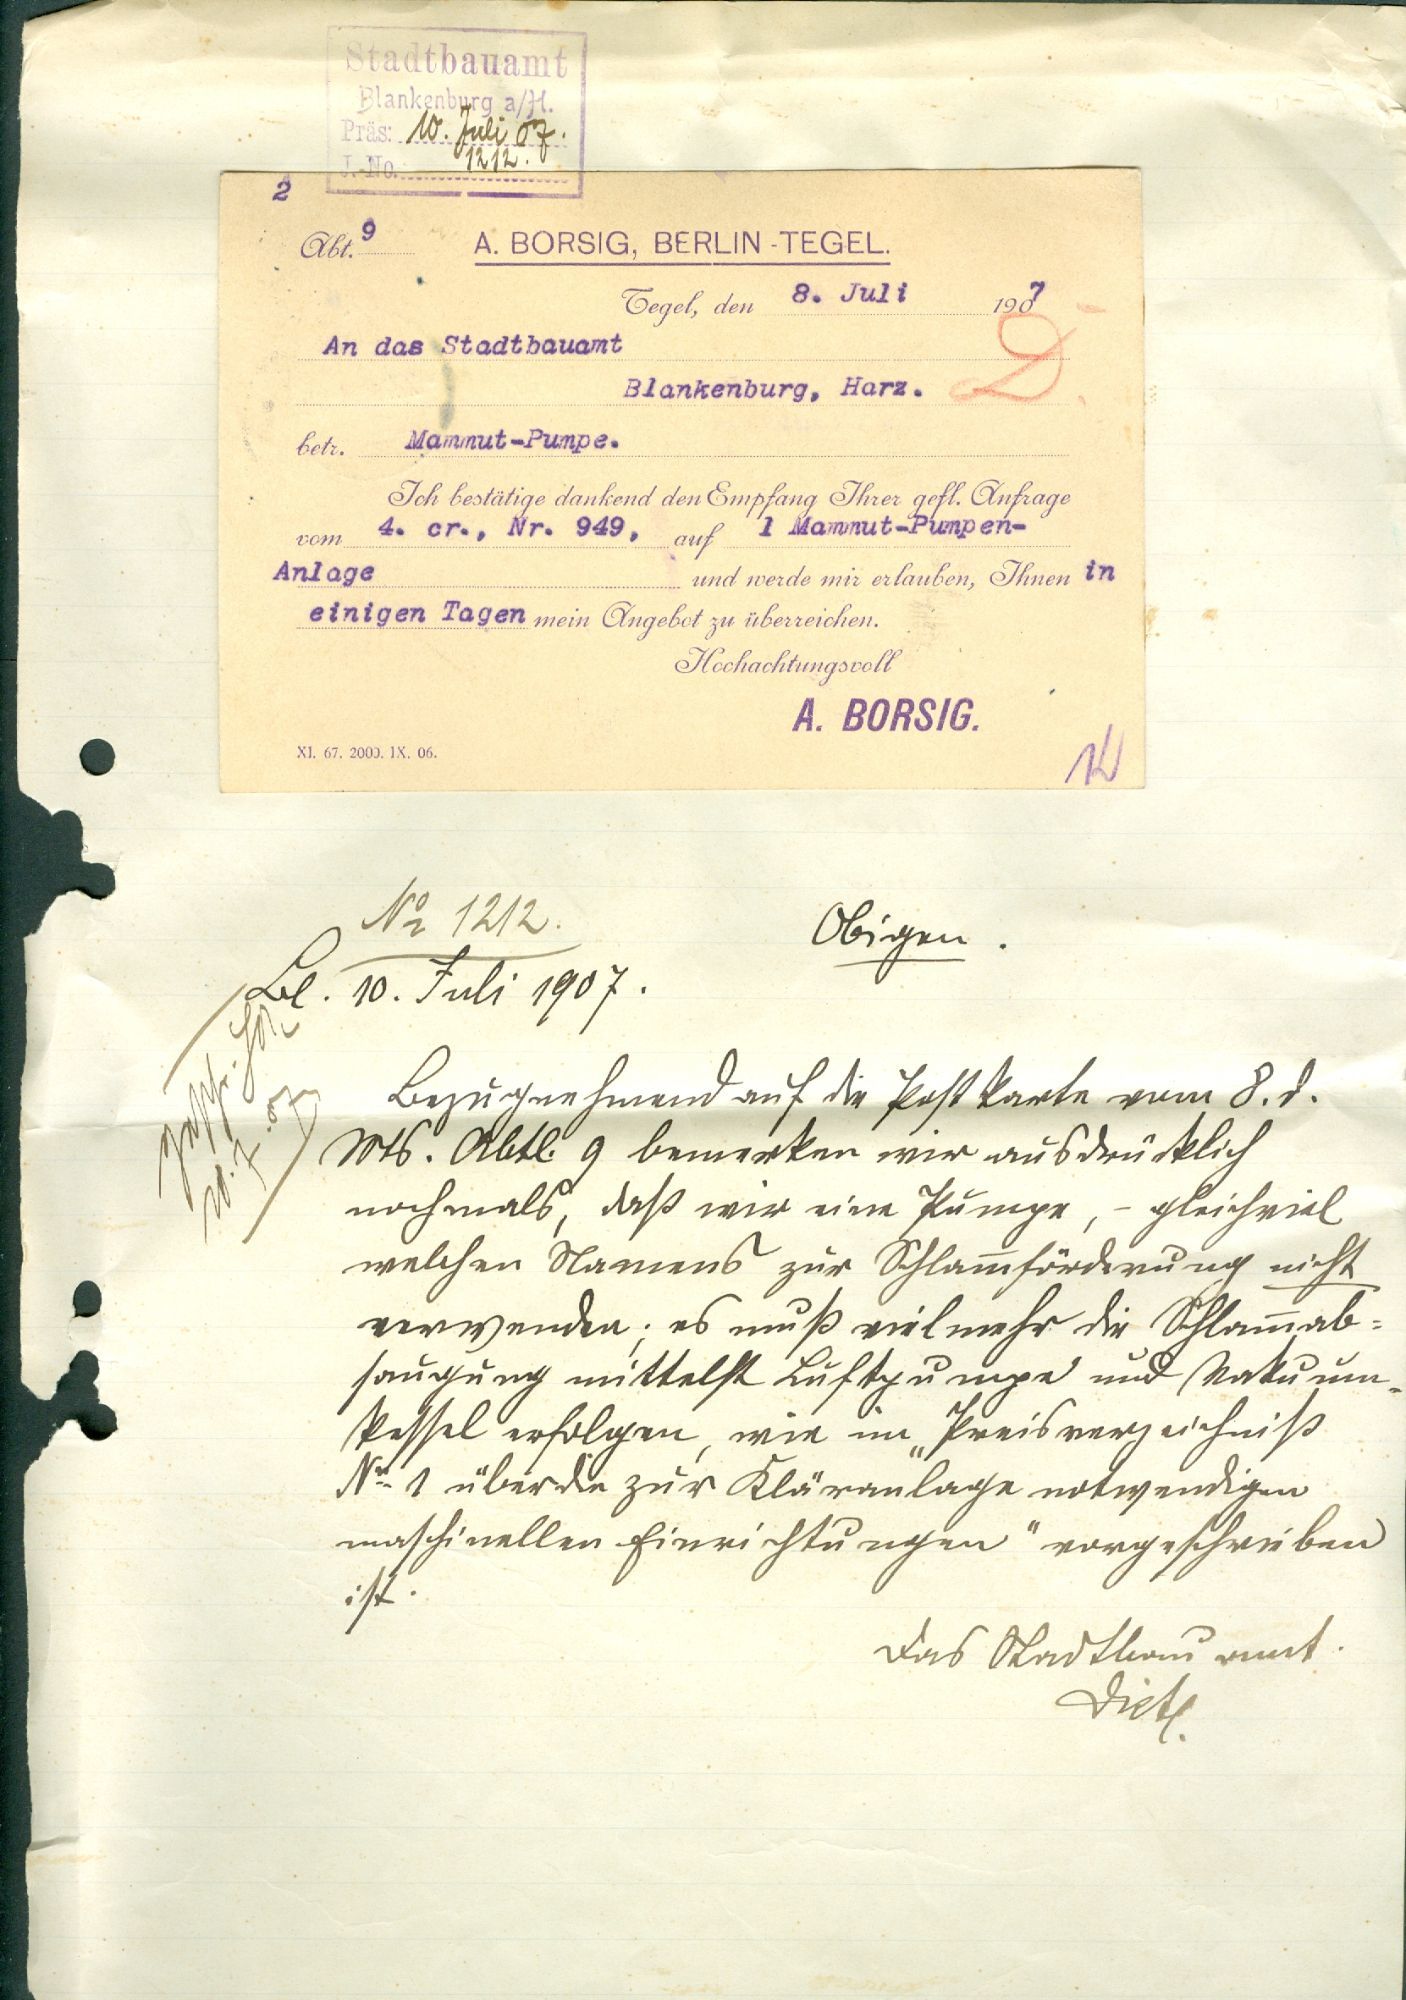 Stadtbauamt
Blankenburg a/H.
Präs: 10. Juli 07.
J.-No. 1212.
2
Abt. 9 A. BORSIG, BERLIN-TEGEL.
Tegel, den 8. Juli 1907
An das Stadtbauamt
Blankenburg, Harz.
D.
betr. Mammut-Pumpe.
Ich bestätige dankend den Empfang Ihrer gefl. Anfrage
vom 4. cr., Nr. 949, auf 1 Mammut-Pumpen-
Anlage und werde mir erlauben, Ihnen in
einigen Tagen mein Angebot zu überreichen.
Hochachtungsvoll
A. BORSIG.
XI. 67. 2000. IX. 06.
No 1212.
Bl. 10. Juli 1907.
Obigen.
10.7.07
Bezugnehmend auf die Postkarte vom 8. d.
Mts. Abtl. 9 bemerken wir ausdrücklich
nochmals, daß wir eine Pumpe, - gleichviel
welchen Namens zur Schlam̅förderung nicht
verwenden; es muß vielmehr die Schlam̅ab=
saugung mittelst Luftpumpe und Vakuum-
kessel erfolgen, wie im „Preisverzeichniß
No 1 über die zur Kläranlage notwendigen
maschinellen Einrichtungen" vorgeschrieben
ist.
Das Stadtbauamt.